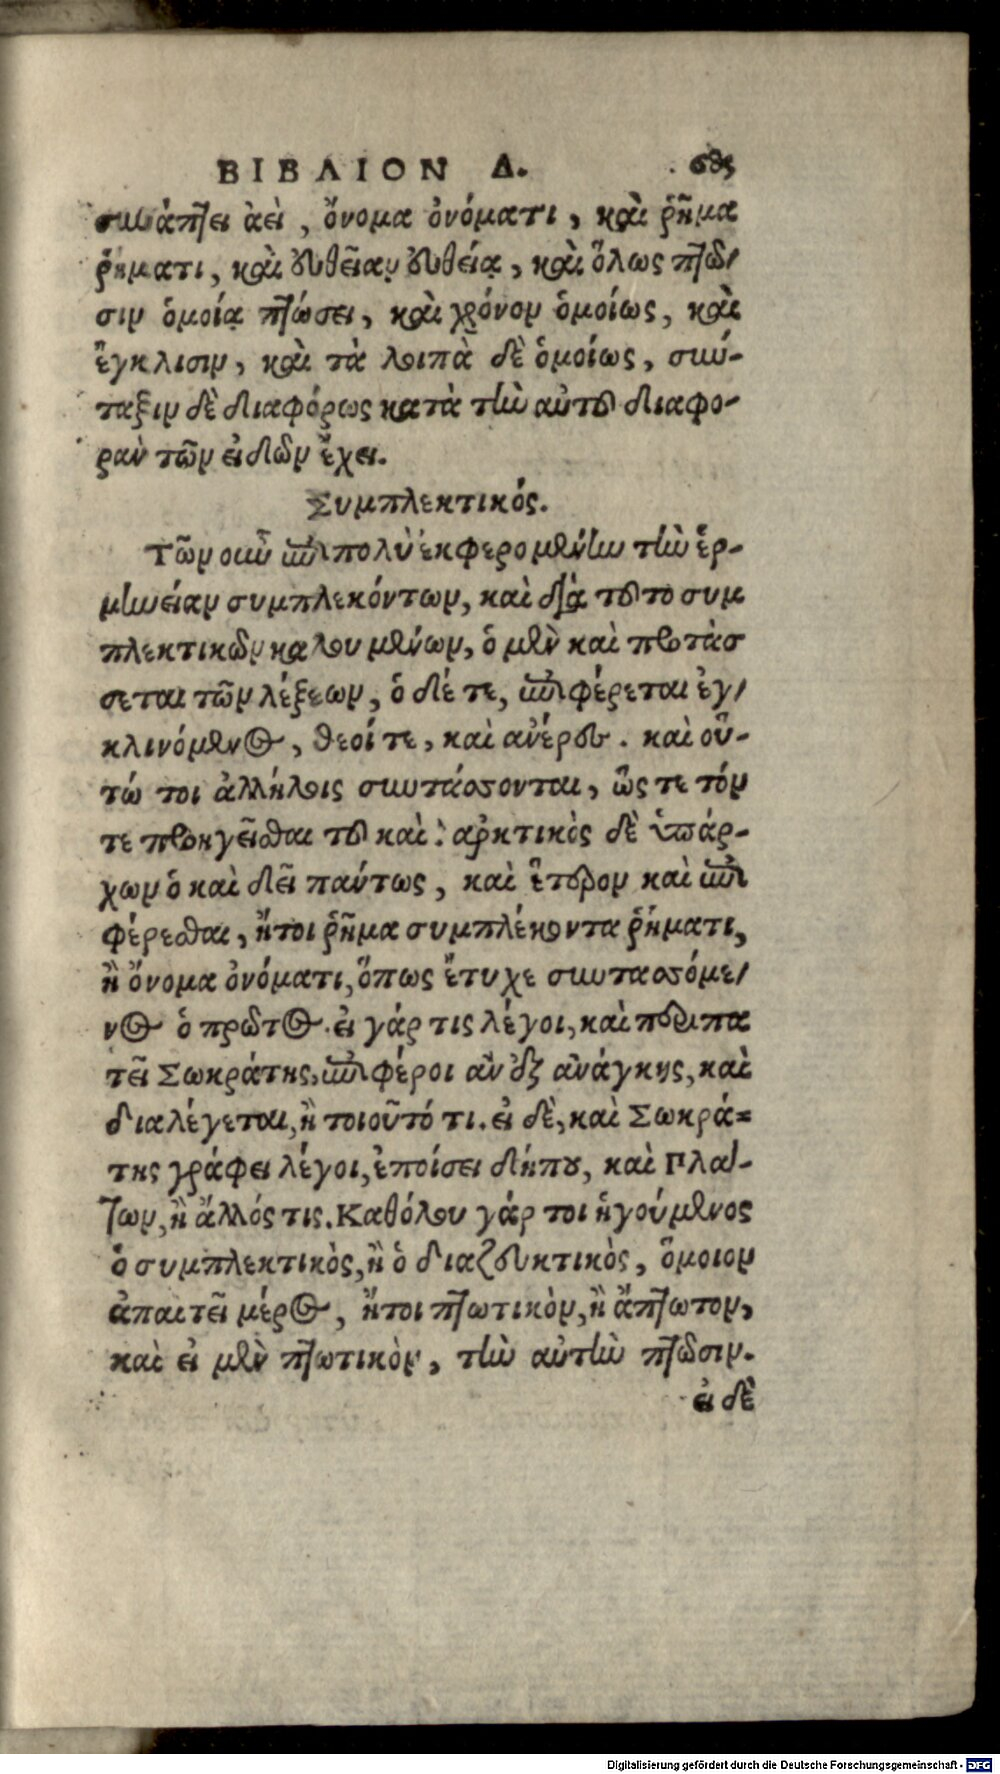 ΒΙΒΛΙΟΝ Δ.
συνάπτει ἀεὶ, ὄνομα ὀνόματι, καὶ ῥῆμα
ῥήματι, καὶ εὐθεῖαν εὐθείᾳ, καὶ ὅλως πτῶ/
σιν ὁμοίᾳ πτώσει, καὶ χρόνον ὁμοίως, καὶ
ἔγκλισιν, καὶ τὰ λοιπὰ δὲ ὁμοίως, σύν-
ταξιν δὲ διαφόρως κατὰ τὴν αὐτοῦ διαφο-
ρὰν τῶν εἰδῶν ἔχει.
Συμπλεκτικός.
Τῶν οὖν ἐπιπολὺ ἐκφερομένην τὴν ἑρ-
μηνείαν συμπλεκόντων, καὶ διὰ τοῦτο συμ
πλεκτικῶν καλουμένων, ὁ μὲν καὶ προτάσ
σεται τῶν λέξεων, ὁ δέ τε, ἐπιφέρεται ἐγ/
κλινόμενος, θεοί τε, καὶ ἀνέρες. καὶ οὕ-
τώ τοι ἀλλήλοις συντάσσονται, ὥς τε τόν
τε προηγεῖσθαι τοῦ καὶ: ἀρκτικὸς δὲ ὑπάρ-
χων ὁ καὶ δεῖ πάντως, καὶ ἕτερον καὶ ἐπι
φέρεσθαι, ἤτοι ῥῆμα συμπλέκοντα ῥήματι,
ἢ ὄνομα ὀνόματι, ὅπως ἔτυχε συντασσόμε/
νος ὁ πρῶτος. εἰ γάρ τις λέγοι, καὶ περιπα
τεῖ Σωκράτης, ἐπιφέροι ἂν ἐξ ἀνάγκης, καὶ
διαλέγεται, ἢ τοιοῦτό τι. εἰ δὲ, καὶ Σωκρά=
της γράφει λέγοι, ἐποίσει δήπου, καὶ Πλά-
των, ἢ ἄλλός τις. Καθόλου γάρ τοι ἡγούμενος
ὁ συμπλεκτικὸς, ἢ ὁ διαζευκτικὸς, ὅμοιον
ἀπαιτεῖ μέρος, ἤτοι πτωτικὸν, ἢ ἄπτωτον,
καὶ εἰ μὲν πτωτικὸν, τὴν αὐτὴν πτῶσιν.
εἰ δὲ
Digitalisierung gefördert durch die Deutsche Forschungsgemeinschaft - DFG